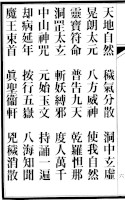 天地自然　穢氣分散　洞中玄虛
晃朗太元　八方威神　使我自然
靈寶符命　普告九天　乾羅怛那
洞罡太玄　斬妖縛邪　度人萬千
中山神咒　元始玉文　持誦一遍
却病延年　按行五嶽　八海知聞
魔王束首　眞聖衛軒　兇穢消散